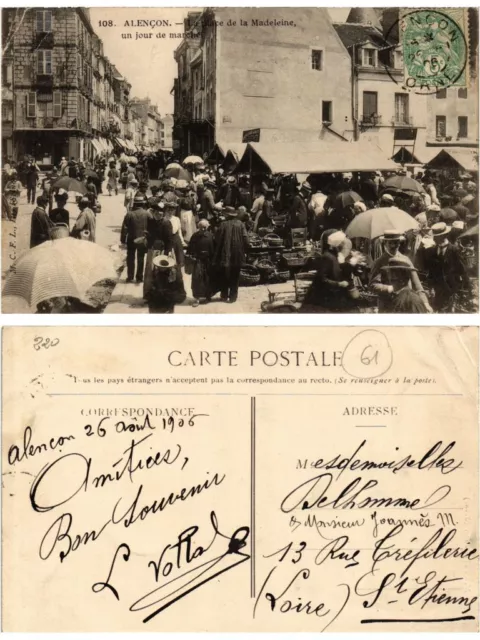 108. ALENÇON. — La place de la Madeleine,
un jour de marché
ALENÇON
ORNE
N. C. F. L.
320
61
CARTE POSTALE
Tous les pays étrangers n'acceptent pas la correspondance au recto. (Se renseigner à la poste).
CORRESPONDANCE
ADRESSE
Alençon 26 août 1906
Amitiés,
Bon Souvenir
L
Mesdemoiselles
Delhomme
& Monsieur Joannès M.
13 Rue Tréfilerie
St Etienne
(Loire)